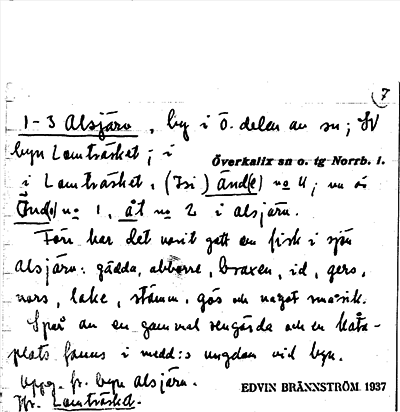 7
1-3 Alsjärv, by i ö. delen av sn; SV
byn Lomträsket; i
Överkalix sn o. tg Norrb. l.
i Lomträsket, (Isi) änd(e) no 4; nu är
änd(e) no 1, åt no 2 i alsjärv.
Förr har det varit gott om fisk i sjön
alsjärv: gädda, abborre, braxen, id, gers,
nors, lake, stämm, gös och något småsik.
Spår av en gammal rengärda och en kåta-
plats fanns i medd:s ungdom vid byn.
Uppg. fr. byn alsjärv.
Jfr. Lomträsket.
EDVIN BRÄNNSTRÖM 1937